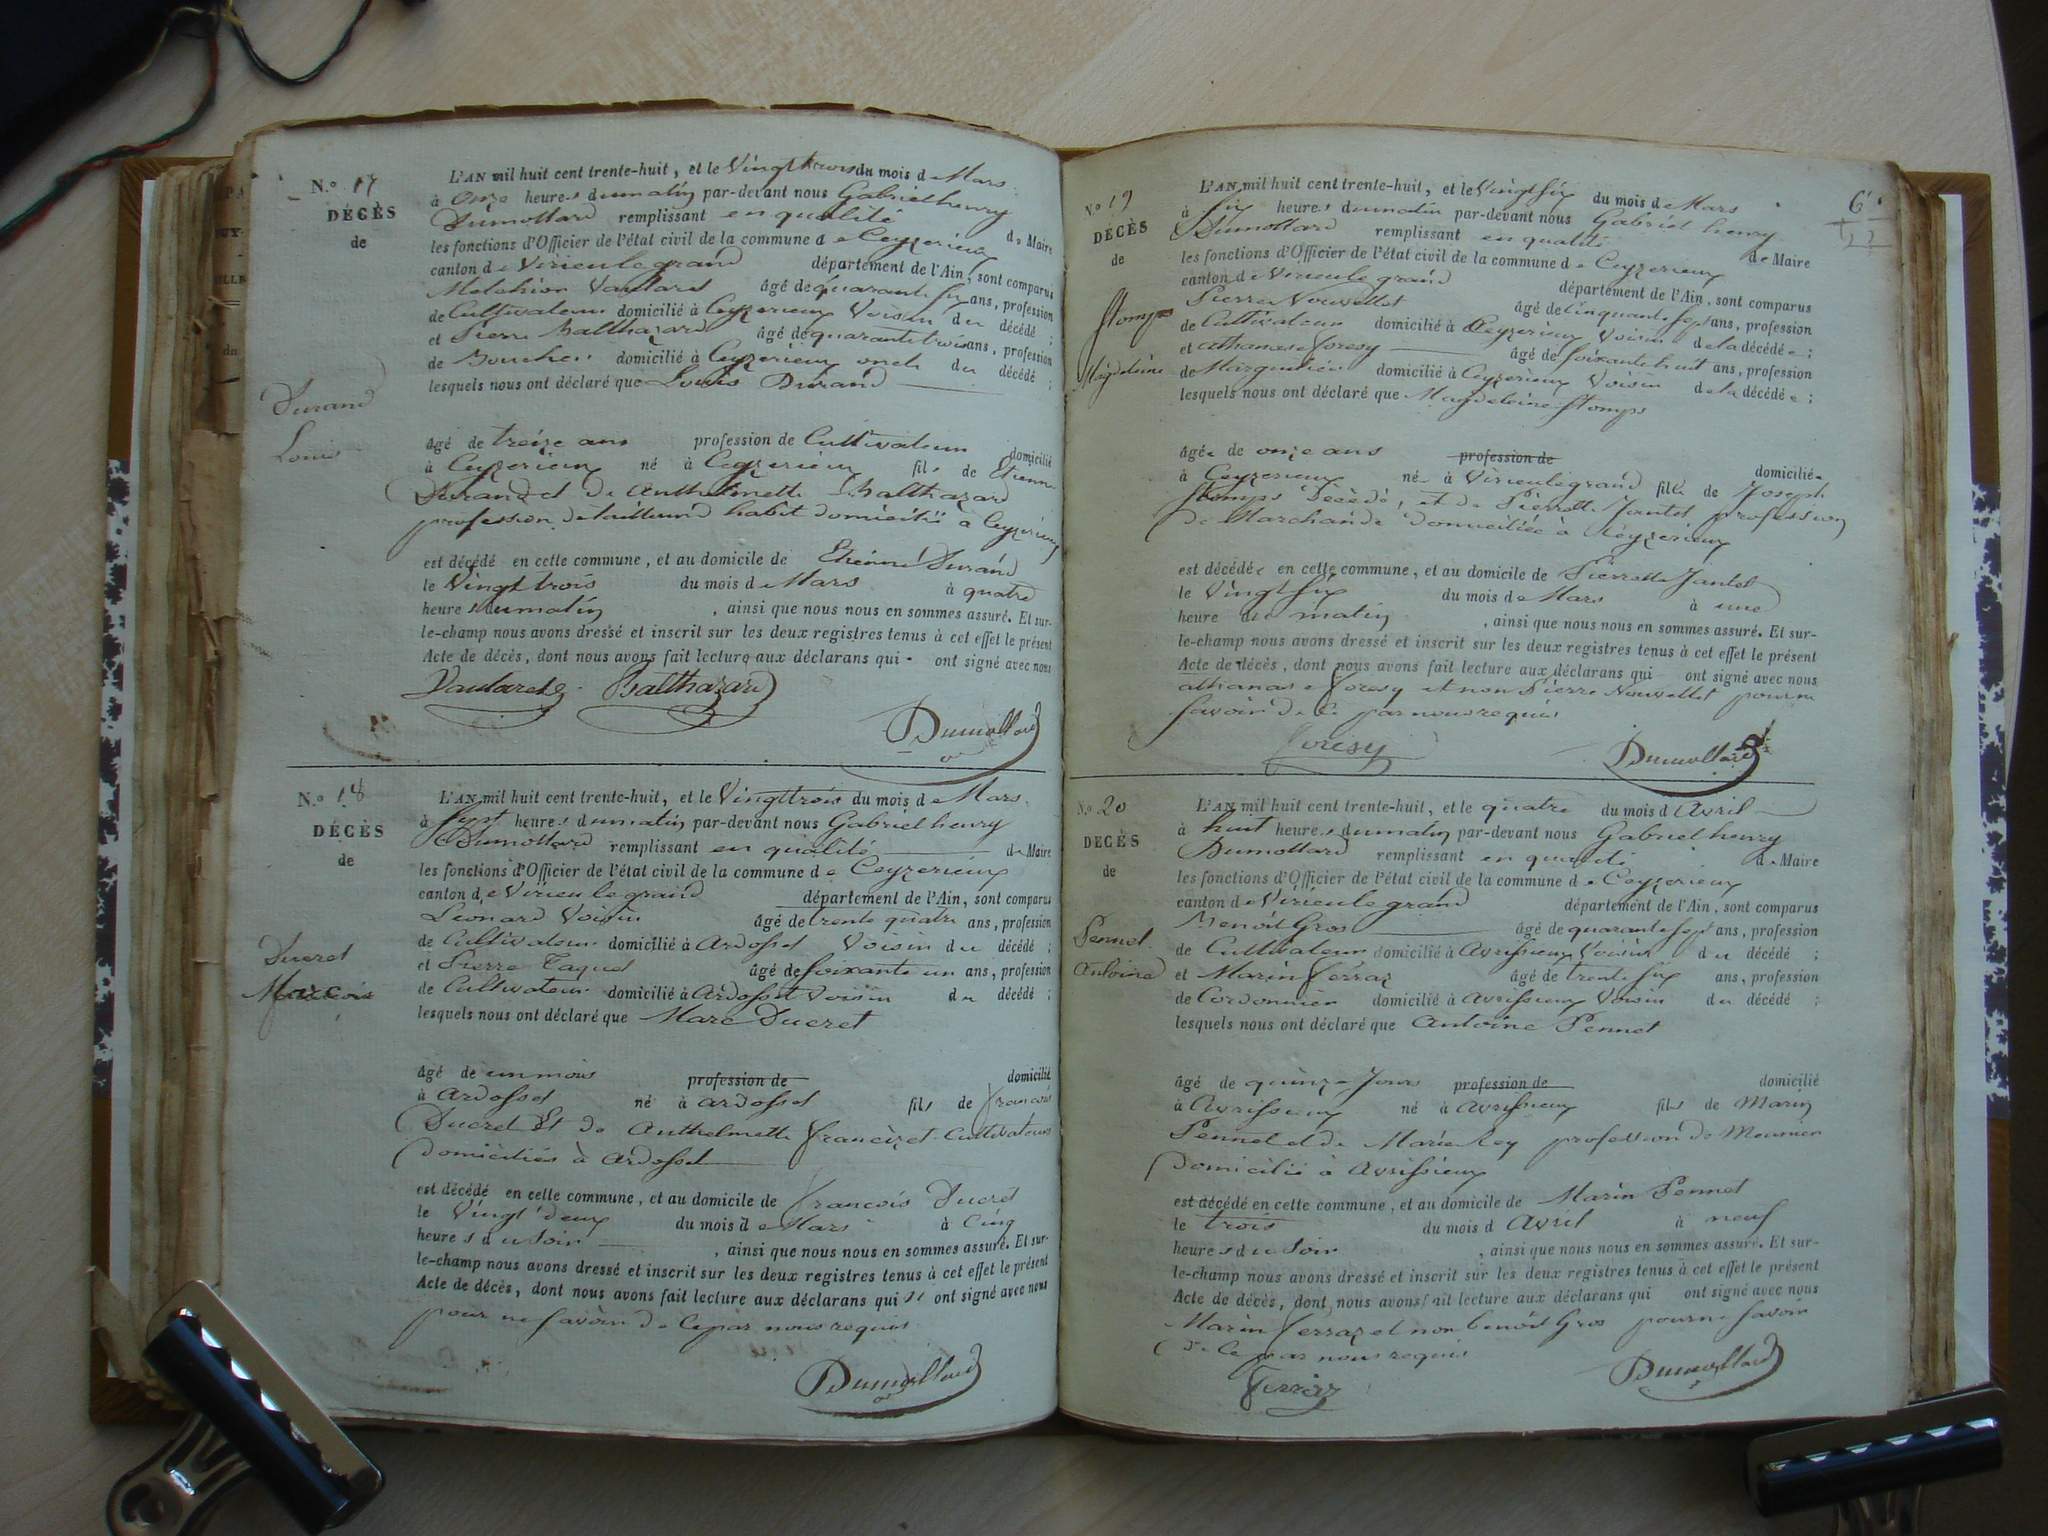 N.o 17
DÉCÈS
de
Durand
Louis
L'AN mil huit cent trente-huit, et le Vingt trois du mois de Mars
à onze heures du matin par-devant nous Gabriel henry
Dumollard remplissant en qualité de Maire
les fonctions d'Officier de l'état civil de la commune de Ceyzerieux
canton de Virieu le grand département de l'Ain, sont comparus
Melchior Vautaret âgé de quarante six ans, profession
de Cultivateur domicilié à Ceyzerieux Voisin du décédé ;
et Pierre Balthazard âgé de quarante trois ans, profession
de Boucher domicilié à Ceyzerieux oncle du décédé ;
lesquels nous ont déclaré que Louis Durand
âgé de treize ans profession de Cultivateur domicilié
à Ceyzerieux né à Ceyzerieux fils de Etienne
Durand et de Anthelmette Balthazard
profession de tailleur d habit domicilié à Ceyzerieux
est décédé en cette commune, et au domicile de Etienne Durand
le Vingt trois du mois de Mars à quatre
heures du matin, ainsi que nous nous en sommes assuré. Et sur-
le-champ nous avons dressé et inscrit sur les deux registres tenus à cet effet le présent
Acte de décès, dont nous avons fait lecture aux déclarans qui ont signé avec nous
Balthazard
Dumollard
N.o 18
DÉCÈS
de
Ducret
L'AN mil huit cent trente-huit, et le Vingt trois du mois de Mars
à sept heures du matin par-devant nous Gabriel henry
Dumollard remplissant en qualité de Maire
les fonctions d'Officier de l'état civil de la commune de Ceyzerieux
canton de Virieu le grand département de l'Ain, sont comparus
Leonard Voisin âgé de trente quatre ans, profession
de Cultivateur domicilié à Ardosset Voisin du décédé ;
et Pierre Taquet âgé de soixante un ans, profession
de Cultivateur domicilié à Ardosset Voisin du décédé ;
lesquels nous ont déclaré que Marc Ducret
âgé de un mois profession de domicilié
à Ardosset né à Ardosset fils de francois
Ducret Et de Anthelmette francizet Cultivateurs
domiciliés à Ardosset
est décédé en cette commune, et au domicile de francois Ducret
le Vingt deux du mois de Mars à Cinq
heures du soir, ainsi que nous nous en sommes assuré. Et sur-
le-champ nous avons dressé et inscrit sur les deux registres tenus à cet effet le présent
Acte de décès, dont nous avons fait lecture aux déclarans qui ont signé avec nous
pour ne savoir de Ce par nous requis
Dumollard
6
N.o 19
DÉCÈS
de
Stomps
Magdeleine
L'AN mil huit cent trente-huit, et le Vingt six du mois de Mars
à six heures du matin par-devant nous Gabriel henry
Dumollard remplissant en qualité de Maire
les fonctions d'Officier de l'état civil de la commune de Ceyzerieux
canton de Virieu le grand département de l'Ain, sont comparus
Pierre Nouvellet âgé de Cinquante sept ans, profession
de Cultivateur domicilié à Ceyzerieux Voisin de la décédée ;
et athanase foresy âgé de soixante huit ans, profession
de Marguilier domicilié à Ceyzerieux Voisin de la décédée ;
lesquels nous ont déclaré que Magdeleine Stomps
âgée de onze ans profession de domiciliée
à Ceyzerieux née à Virieulegrand fille de Joseph
Stomps décédé, et de Pierrette Jantet profession
de Marchande domiciliée à Ceyzerieux
est décédée en cette commune, et au domicile de Pierrette Jantet
le Vingt six du mois de Mars à une
heure du matin, ainsi que nous nous en sommes assuré. Et sur-
le-champ nous avons dressé et inscrit sur les deux registres tenus à cet effet le présent
Acte de décès, dont nous avons fait lecture aux déclarans qui ont signé avec nous
athanase foresy et non Pierre Nouvellet pour ne
savoir de Ce par nous requis
foresy
Dumollard
N.o 20
DÉCÈS
de
Pennet
Antoine
L'AN mil huit cent trente-huit, et le quatre du mois d Avril
à huit heures du matin par-devant nous Gabriel henry
Dumollard remplissant en qualité de Maire
les fonctions d'Officier de l'état civil de la commune de Ceyzerieux
canton de Virieu le grand département de l'Ain, sont comparus
Benoit Gros âgé de quarante sept ans, profession
de Cultivateur domicilié à Avrissieux Voisin du décédé ;
et Marin ferraz âgé de trente six ans, profession
de Cordonnier domicilié à Avrissieux Voisin du décédé ;
lesquels nous ont déclaré que Antoine Pennet
âgé de quinze Jours profession de domicilié
à Avrissieux né à Avrissieux fils de Marin
Pennet et de Marie Rey profession de Meunier
domicilié à Avrissieux
est décédé en cette commune, et au domicile de Marin Pennet
le trois du mois d Avril à neuf
heures du soir, ainsi que nous nous en sommes assuré. Et sur-
le-champ nous avons dressé et inscrit sur les deux registres tenus à cet effet le présent
Acte de décès, dont nous avons fait lecture aux déclarans qui ont signé avec nous
Marin ferraz et non benoit Gros pour ne savoir
de Ce par nous requis
Dumollard